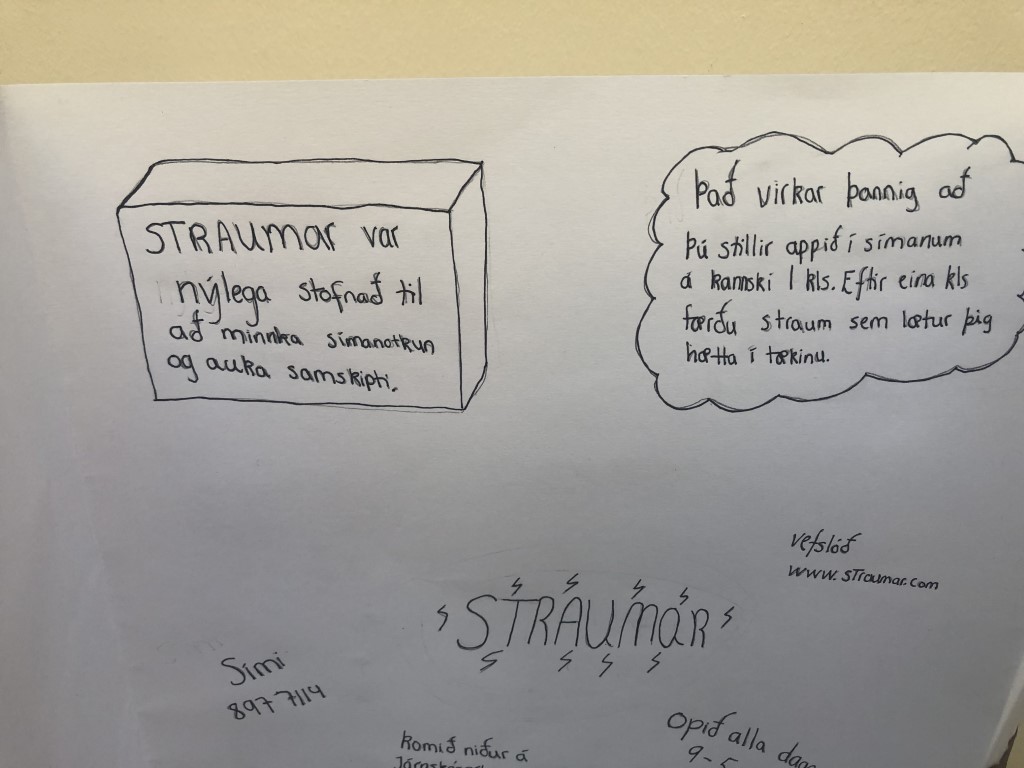 STRAUMAR var
nýlega stofnað til
að minnka símanotkun
og auka samskipti.
Það virkar þannig að
Þú stillir appið í símanum
á kannski 1 kls. Eftir eina kls
færðu straum sem lætur þig
hætta í tækinu.
vefslóð
www.straumar.com
STRAUMAR
Sími
897 7114
Opið alla
9-5
Komið niður á